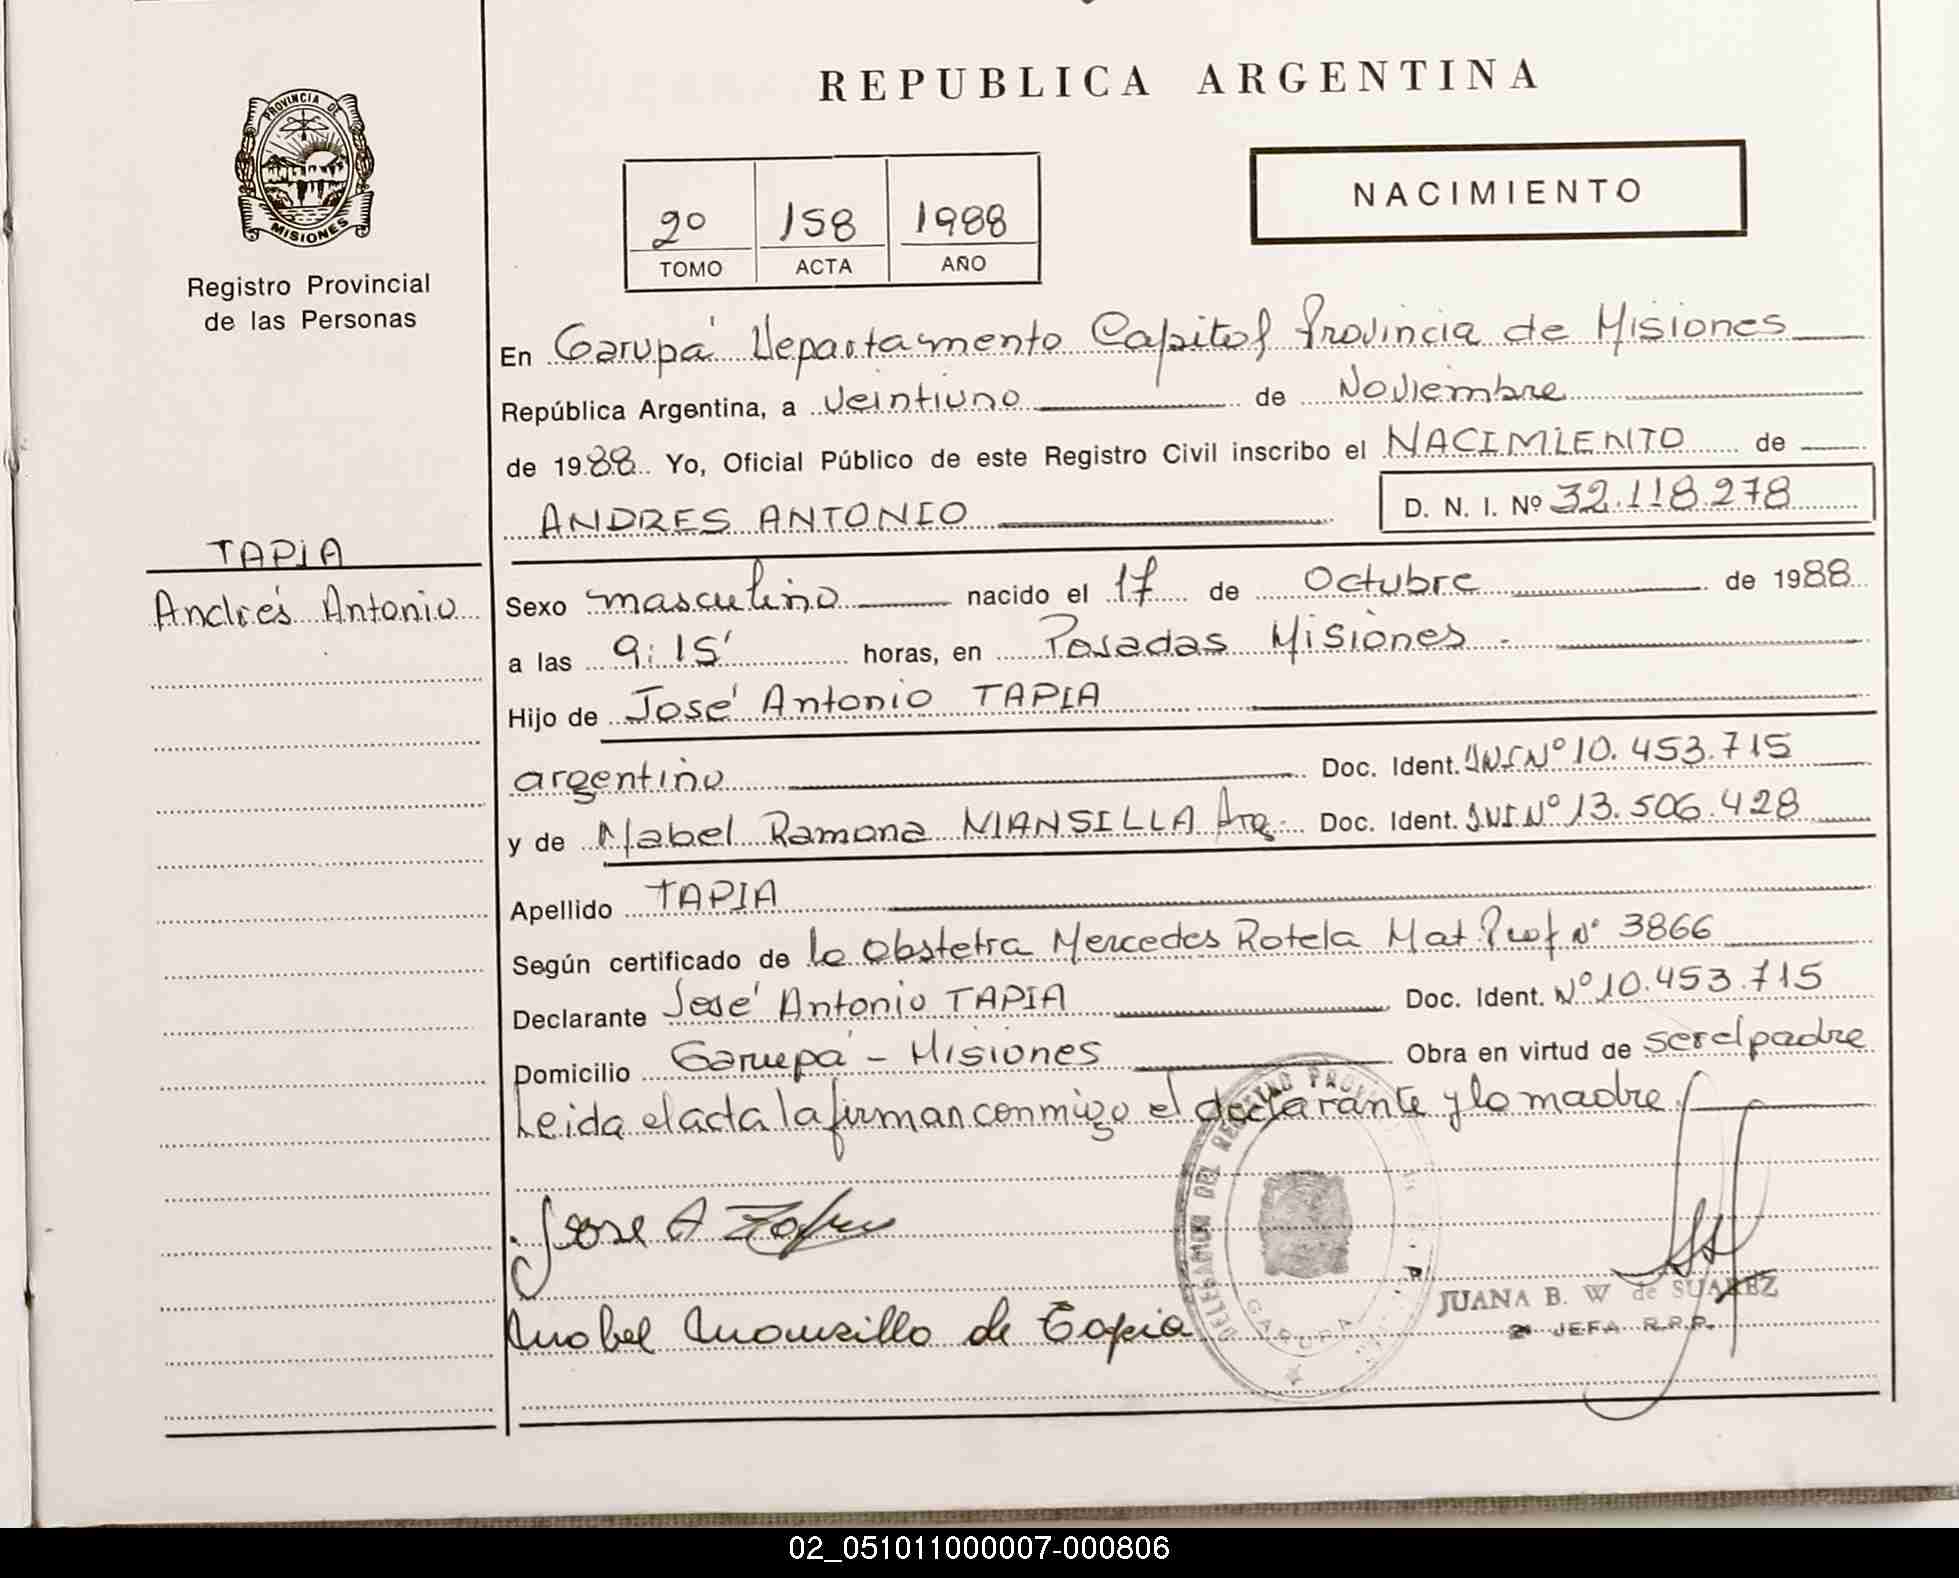 PROVINCIA DE
MISIONES
Registro Provincial
de las Personas
TAPIA
Andrés Antonio
REPUBLICA ARGENTINA
2º 158 1988
TOMO ACTA AÑO
NACIMIENTO
En Garupá Departamento Capital Provincia de Misiones
República Argentina, a veintiuno de Noviembre
de 1988 Yo, Oficial Público de este Registro Civil inscribo el NACIMIENTO de
ANDRES ANTONIO D. N. I. Nº 32.118.278
Sexo masculino nacido el 17 de Octubre de 1988
a las 9:15' horas, en Posadas Misiones -
Hijo de José Antonio TAPIA
argentino Doc. Ident. DNI Nº 10.453.715
y de Mabel Ramona MANSILLA Arg. Doc. Ident. DNI Nº 13.506.428
Apellido TAPIA
Según certificado de la Obstetra Mercedes Rotela Mat. Prof Nº 3866
Declarante José Antonio TAPIA Doc. Ident. Nº 10.453.715
Domicilio Garupá - Misiones Obra en virtud de ser el padre
Leida el acta la firman conmigo el declarante y la madre.
Jose A
Mabel Mansilla de Tapia
DELEGACION DEL REGISTRO
GARUPA
JUANA B. W de SUAREZ
JEFA R.R.P.
02_051011000007-000806